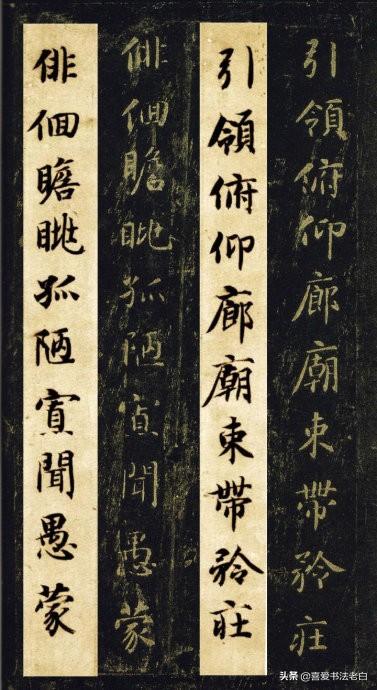 引領俯仰廊廟束帶矜庄
引領俯仰廊廟束帶矜庄
俳佪瞻眺孤陋寡聞愚蒙
俳佪瞻眺孤陋寡聞愚蒙
头条 @喜爱书法老白